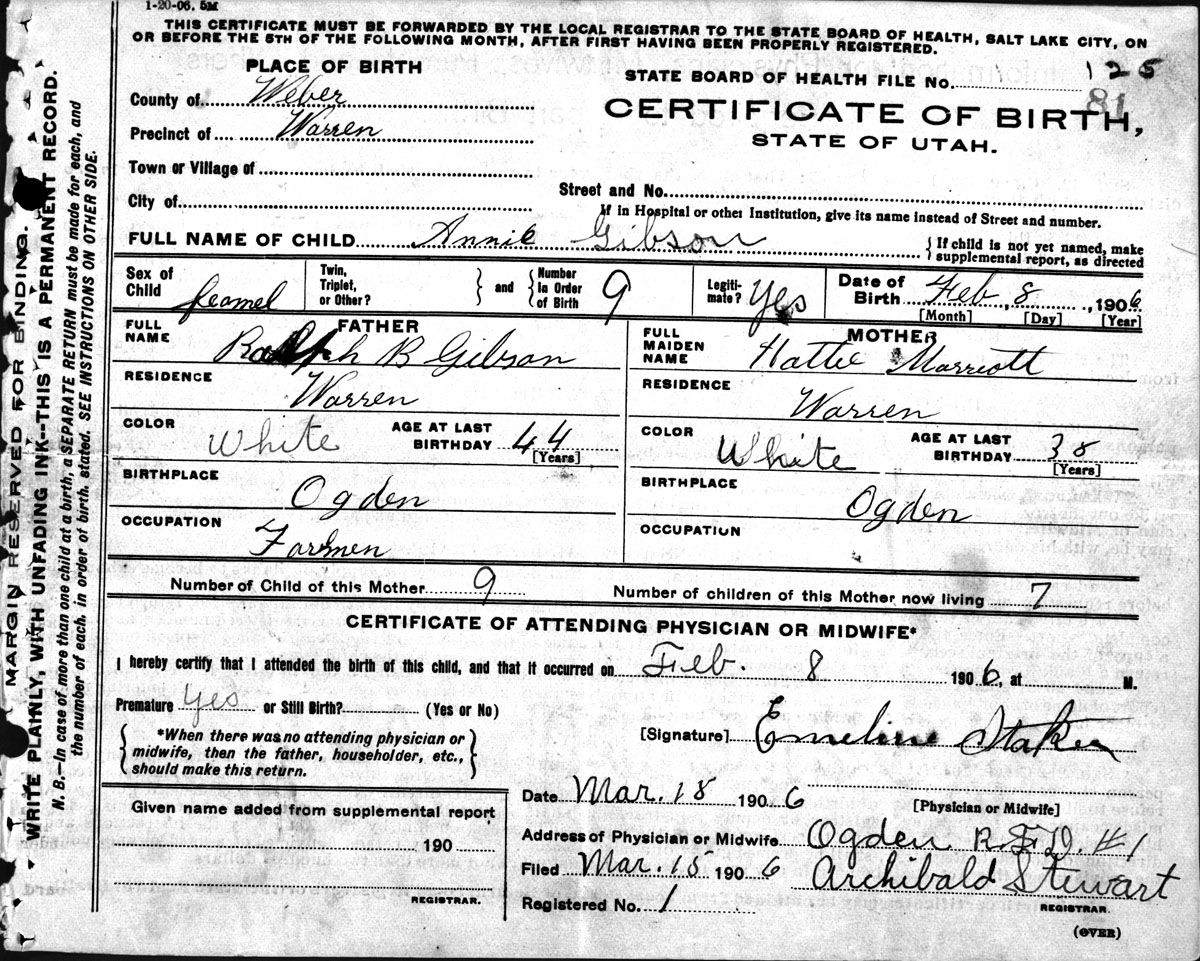 1-20-06. 5M
THIS CERTIFICATE MUST BE FORWARDED BY THE LOCAL REGISTRAR TO THE STATE BOARD OF HEALTH, SALT LAKE CITY, ON
OR BEFORE THE 5TH OF THE FOLLOWING MONTH, AFTER FIRST HAVING BEEN PROPERLY REGISTERED.
PLACE OF BIRTH
STATE BOARD OF HEALTH FILE No. 125
81
County of Weber
CERTIFICATE OF BIRTH,
Precinct of Warren
STATE OF UTAH.
Town or Village of
Street and No.
City of
If in Hospital or other Institution, give its name instead of Street and number.
FULL NAME OF CHILD Annie Gibson
{If child is not yet named, make
supplemental report, as directed
Sex of
Child feamel
Twin,
Triplet,
or Other?
} and {
Number
in Order
of Birth 9
Legiti-
mate? Yes
Date of
Birth Feb, 8, 1906
[Month] [Day] [Year]
FATHER
FULL
NAME Ralph B Gibson
MOTHER
FULL
MAIDEN
NAME Hattie Marriott
RESIDENCE Warren
RESIDENCE Warren
COLOR White
AGE AT LAST
BIRTHDAY 44
[Years]
COLOR White
AGE AT LAST
BIRTHDAY 38
[Years]
BIRTHPLACE Ogden
BIRTHPLACE Ogden
OCCUPATION Farmen
OCCUPATION
Number of Child of this Mother 9
Number of children of this Mother now living 7
CERTIFICATE OF ATTENDING PHYSICIAN OR MIDWIFE*
I hereby certify that I attended the birth of this child, and that it occurred on Feb. 8 1906, at M.
Premature yes or Still Birth? (Yes or No)
{*When there was no attending physician or
midwife, then the father, householder, etc.,
should make this return.}
[Signature] Emeline Staker
Date Mar. 15 1906
[Physician or Midwife]
Given name added from supplemental report
190
REGISTRAR.
Address of Physician or Midwife Ogden R.F.D. #1
Filed Mar. 15 1906 Archibald Stewart
Registered No. 1
REGISTRAR.
(OVER)
MARGIN RESERVED FOR BINDING.
WRITE PLAINLY, WITH UNFADING INK--THIS IS A PERMANENT RECORD.
N. B.—In case of more than one child at a birth, a SEPARATE RETURN must be made for each, and
the number of each, in order of birth, stated. SEE INSTRUCTIONS ON OTHER SIDE.